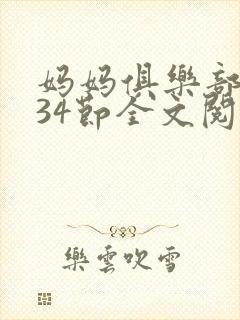 妈妈俱樂部
34節全文閱
樂雲吹雪